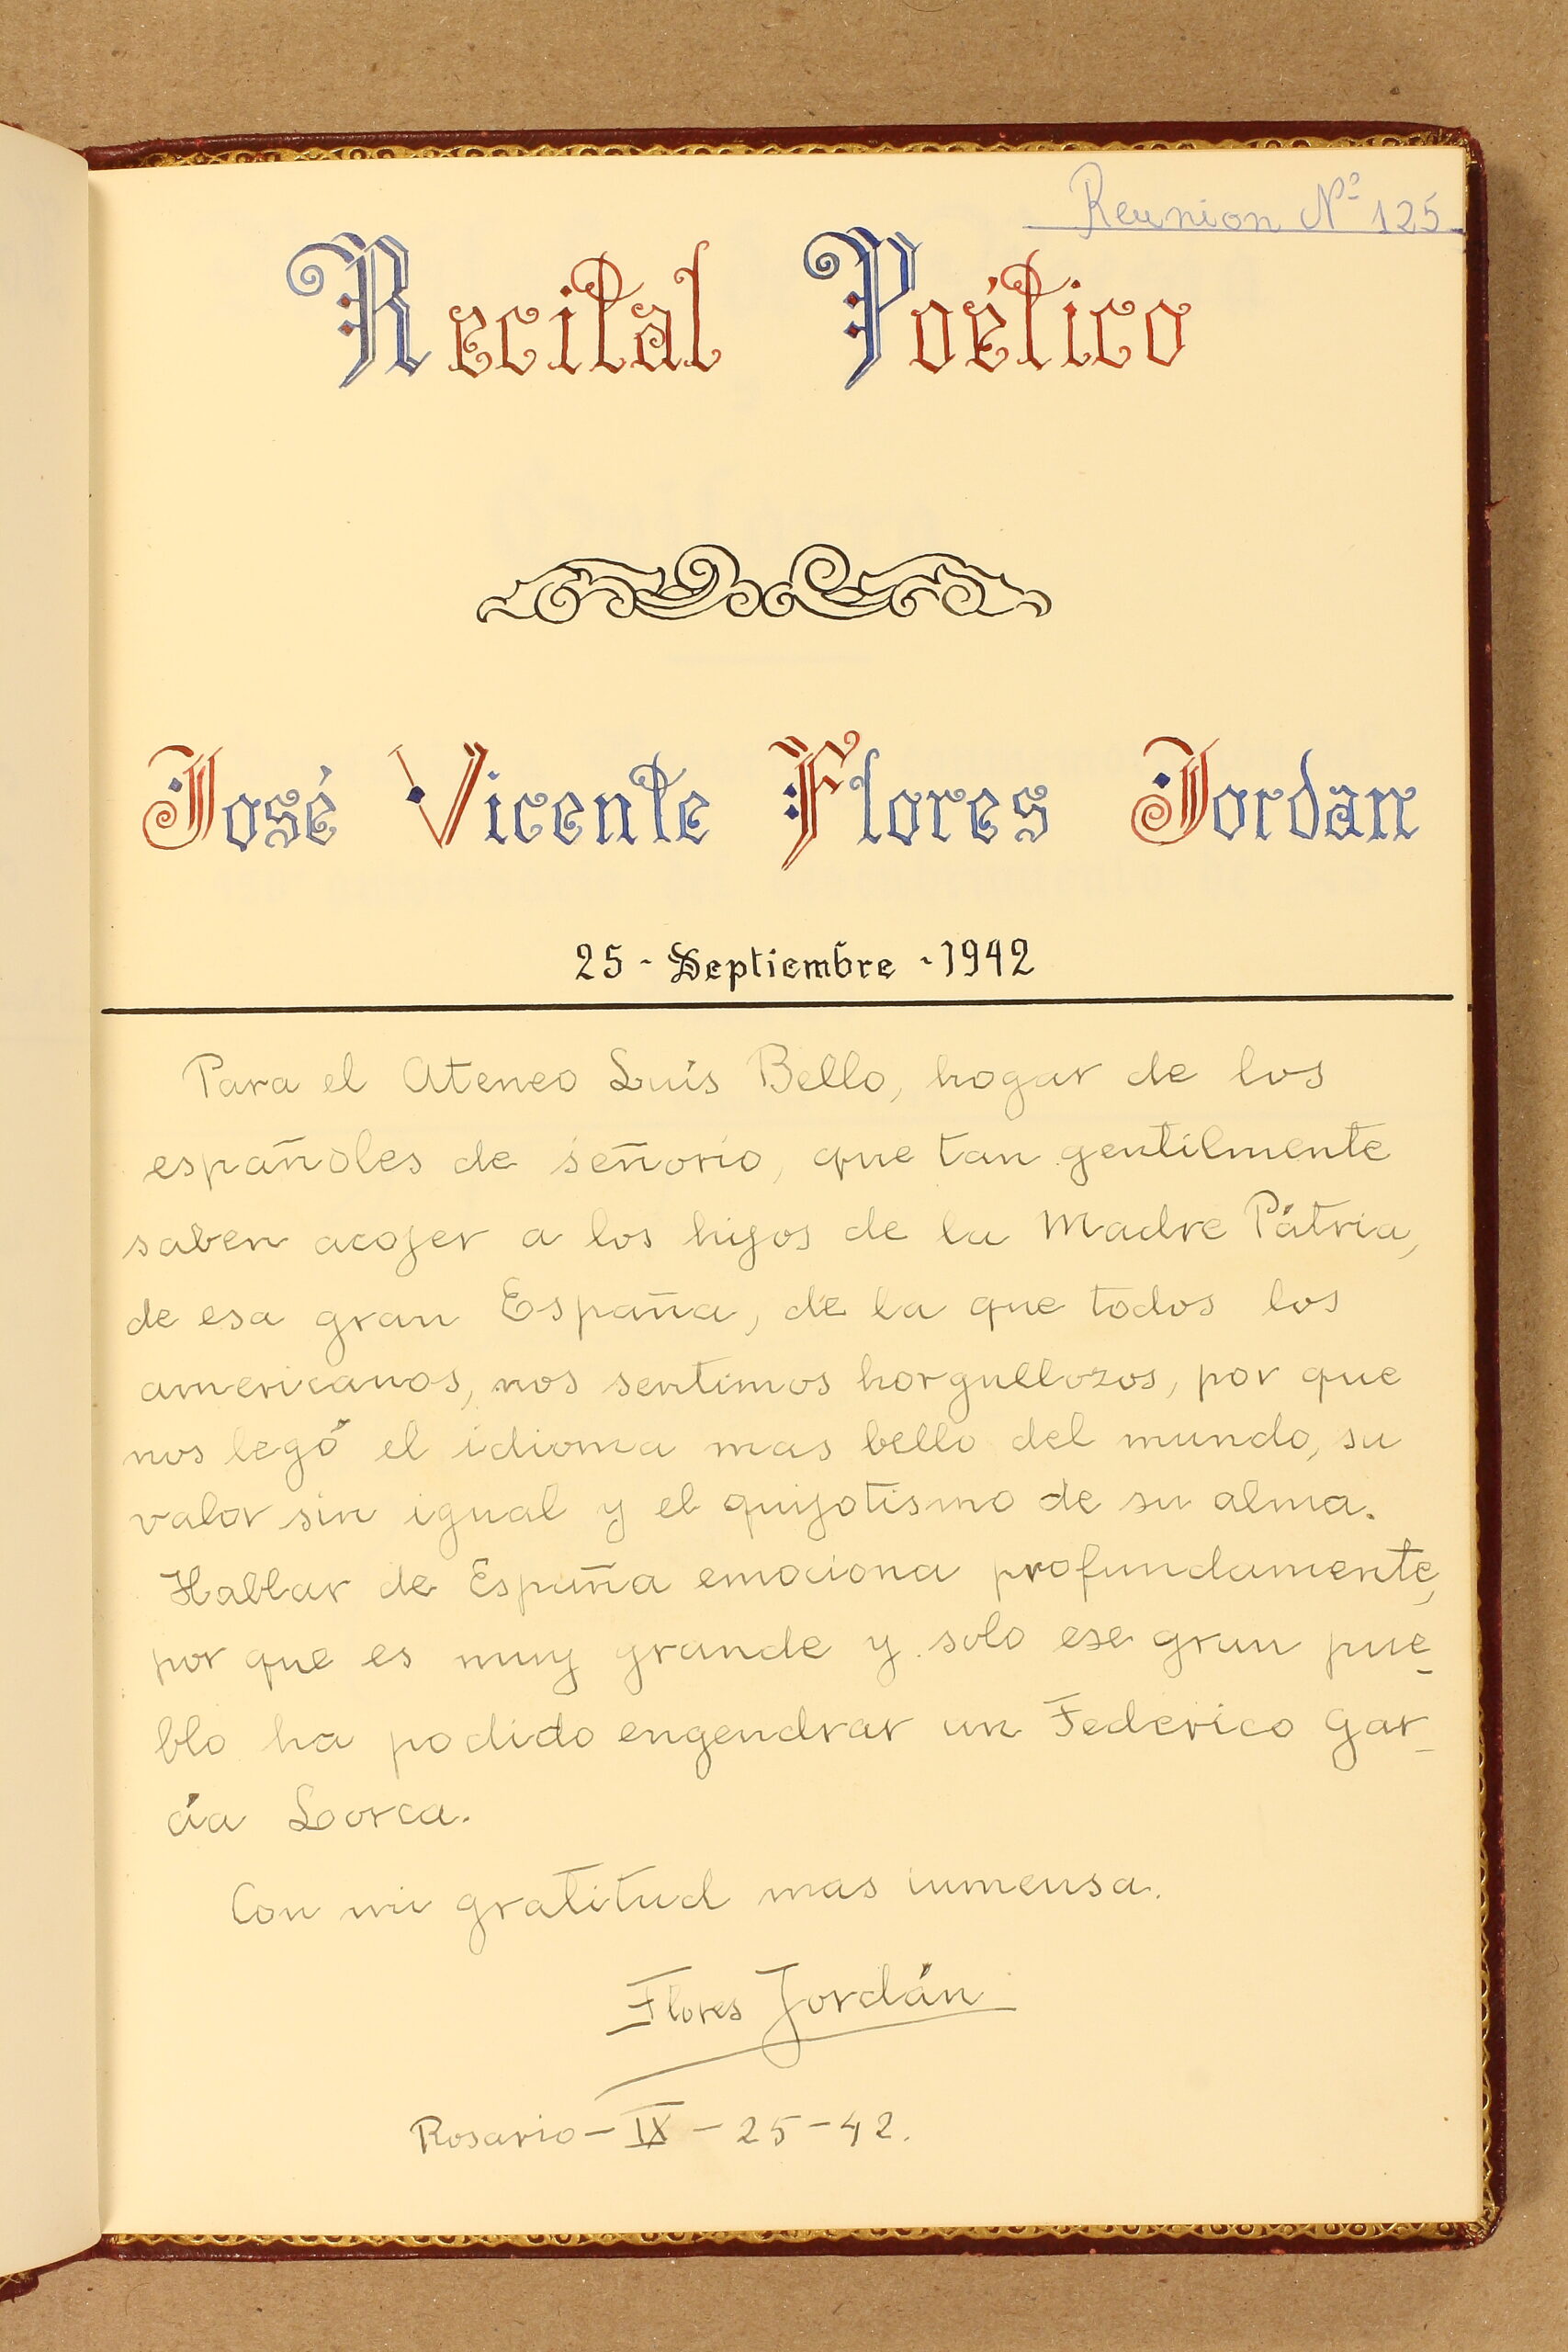 Reunion Nº 125
Recital Poético
José Vicente Flores Jordan
25 - Septiembre - 1942
Para el Ateneo Luis Bello, hogar de los
españoles de señorio, que tan gentilmente
saben acojer a los hijos de la Madre Pátria,
de esa gran España, de la que todos los
americanos, nos sentimos horgullozos, por que
nos legó el idioma mas bello del mundo, su
valor sin igual y el quijotismo de su alma.
Hablar de España emociona profundamente,
por que es muy grande y solo ese gran pue-
blo ha podido engendrar un Federico Gar-
cía Lorca.
Con mi gratitud mas inmensa.
Flores Jordán
Rosario - IX - 25 - 42.